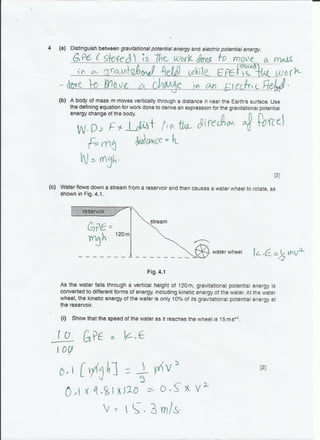 4 (a) Distinguish between gravitational potential energy and electric potential energy.
GPE (stored) is The work done to move a mass
in a gravitational field while EPE is the work
done to move a charge in an Electric field.
(b) A body of mass m moves vertically through a distance h near the Earth's surface. Use
the defining equation for work done to derive an expression for the gravitational potential
energy change of the body.
W.D = F x dist (in the direction of force)
F = mg distance = h
W = mgh.
[2]
(c) Water flows down a stream from a reservoir and then causes a water wheel to rotate, as
shown in Fig. 4.1.
reservoir
stream
GPE =
mgh
120m
water wheel
k.E = ½ mv²
Fig. 4.1
As the water falls through a vertical height of 120m, gravitational potential energy is
converted to different forms of energy, including kinetic energy of the water. At the water
wheel, the kinetic energy of the water is only 10% of its gravitational potential energy at
the reservoir.
(i) Show that the speed of the water as it reaches the wheel is 15 m s⁻¹.
10/100 GPE = k.E
0.1 [mgh] = 1/2 mv²
[2]
0.1 x 9.81 x 120 = 0.5 x v²
v = 15.3 m/s.